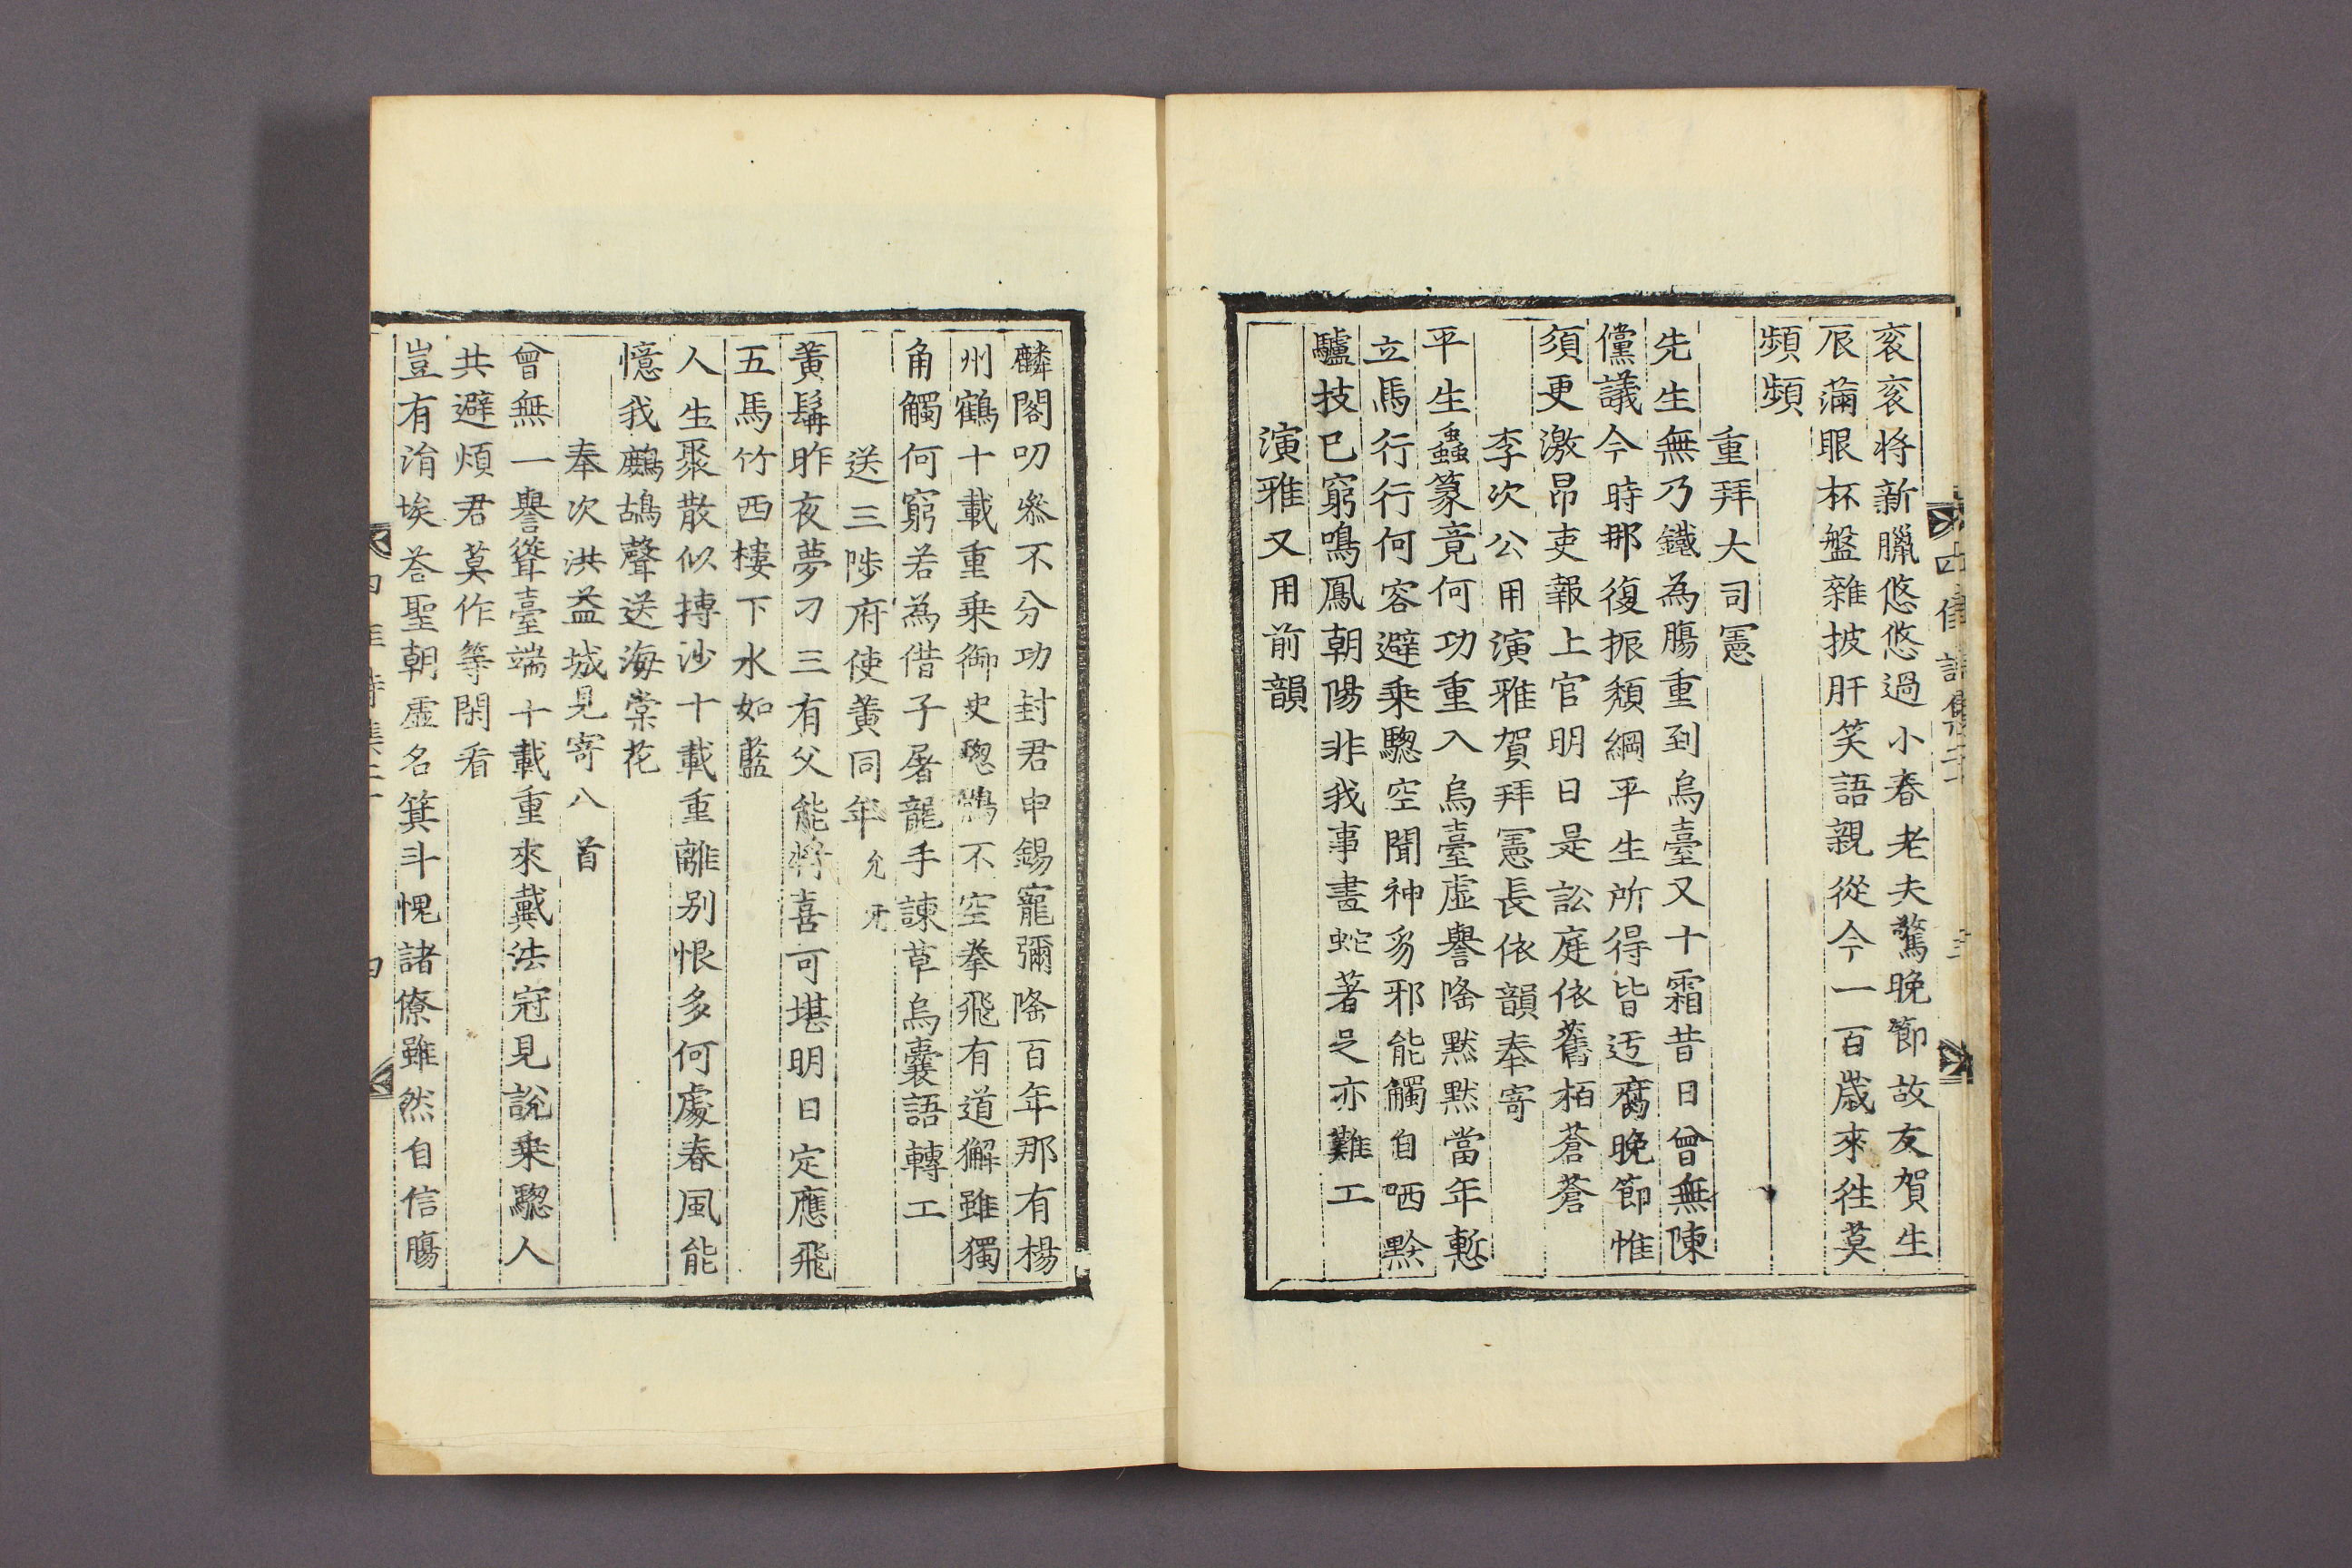 衮衮將新臘悠悠過小春老夫驚晚節故友賀生
辰滿眼杯盤雜披肝笑語親從今一百歲來往莫
頻頻
重拜大司憲
先生無乃鐵為膓重到烏臺又十霜昔日曾無陳
儻議今時那復振頹綱平生所得皆迃腐晚節惟
須更激昂吏報上官明日是訟庭依舊栢蒼蒼
李次公用演雅賀拜憲長依韻奉寄
平生蟲篆竟何功重入烏臺虛譽隆黙黙當年慙
立馬行行何容避乘驄空聞神豸邪能觸自哂黔
驢技已窮鳴鳳朝陽非我事畫蛇著足亦難工
演雅又用前韻
麟閣叨叅不分功封君申錫寵彌隆百年那有楊
州鶴十載重乘御史驄鷄不空拳飛有道獬雖獨
角觸何窮若為借子屠龍手諫草烏囊語轉工
送三陟府使黃同年允牙
黃髯昨夜夢刀三有父能將喜可堪明日定應飛
五馬竹西樓下水如藍
人生聚散似搏沙十載重離別恨多何處春風能
憶我鷓鴣聲送海棠花
奉次洪益城見寄八首
曾無一譽聳臺端十載重來戴法冠見說乘驄人
共避煩君莫作等閑看
豈有涓埃荅聖朝虛名箕斗愧諸僚雖然自信膓
四佳詩集